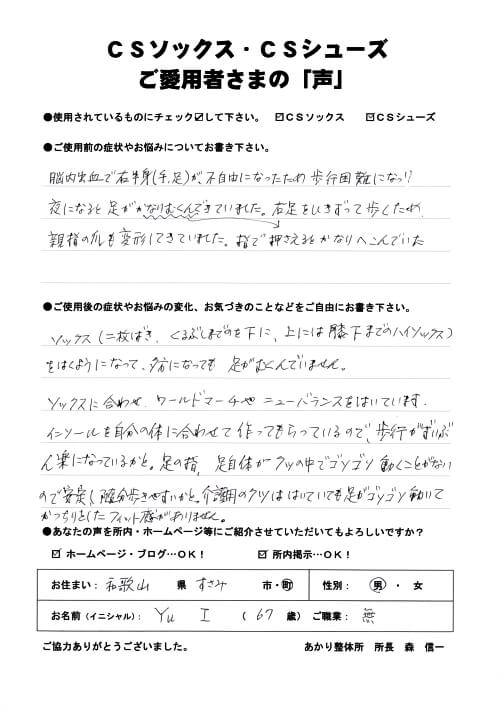 CSソックス・CSシューズ
ご愛用者さまの「声」
●使用されているものにチェック☑して下さい。 ☑CSソックス ☑CSシューズ
●ご使用前の症状やお悩みについてお書き下さい。
脳内出血で右半身(手,足)が不自由になったため歩行困難になっ
夜になると足がかなりむくんできていました。右足をひきずって歩くため
親指の爪も変形してきていました。指で押さえるとかなりへこんでいた
●ご使用後の症状やお悩みの変化、お気づきのことなどをご自由にお書き下さい。
ソックス(二枚ばき、くるぶしまでのを下に、上には膝下までのハイソックス)
をはくようになって、夕方になっても足がむくんでいません。
ソックスに合わせ、ワールドマーチやニューバランスをはいています.
インソールを自分の体に合わせて作ってもらっているので、歩行がずいぶ
ん楽になっているかと。足の指,足自体がクツの中でゴソゴソ動くことがない
ので安定し随分歩きやすいかと。介護用のクツははいていても足がゴソゴソ動いて
がっちりとしたフィット感がありません。
●あなたの声を所内・ホームページ等にご紹介させていただいてもよろしいですか？
☑ ホームページ・ブログ…OK！ ☑ 所内掲示…OK！
お住まい： 和歌山 県 すさみ 市・町 性別： 男 ・ 女
お名前（イニシャル）： Yu I （ 67 歳） ご職業： 無
ご協力ありがとうございました。 あかり整体所 所長 森 信一